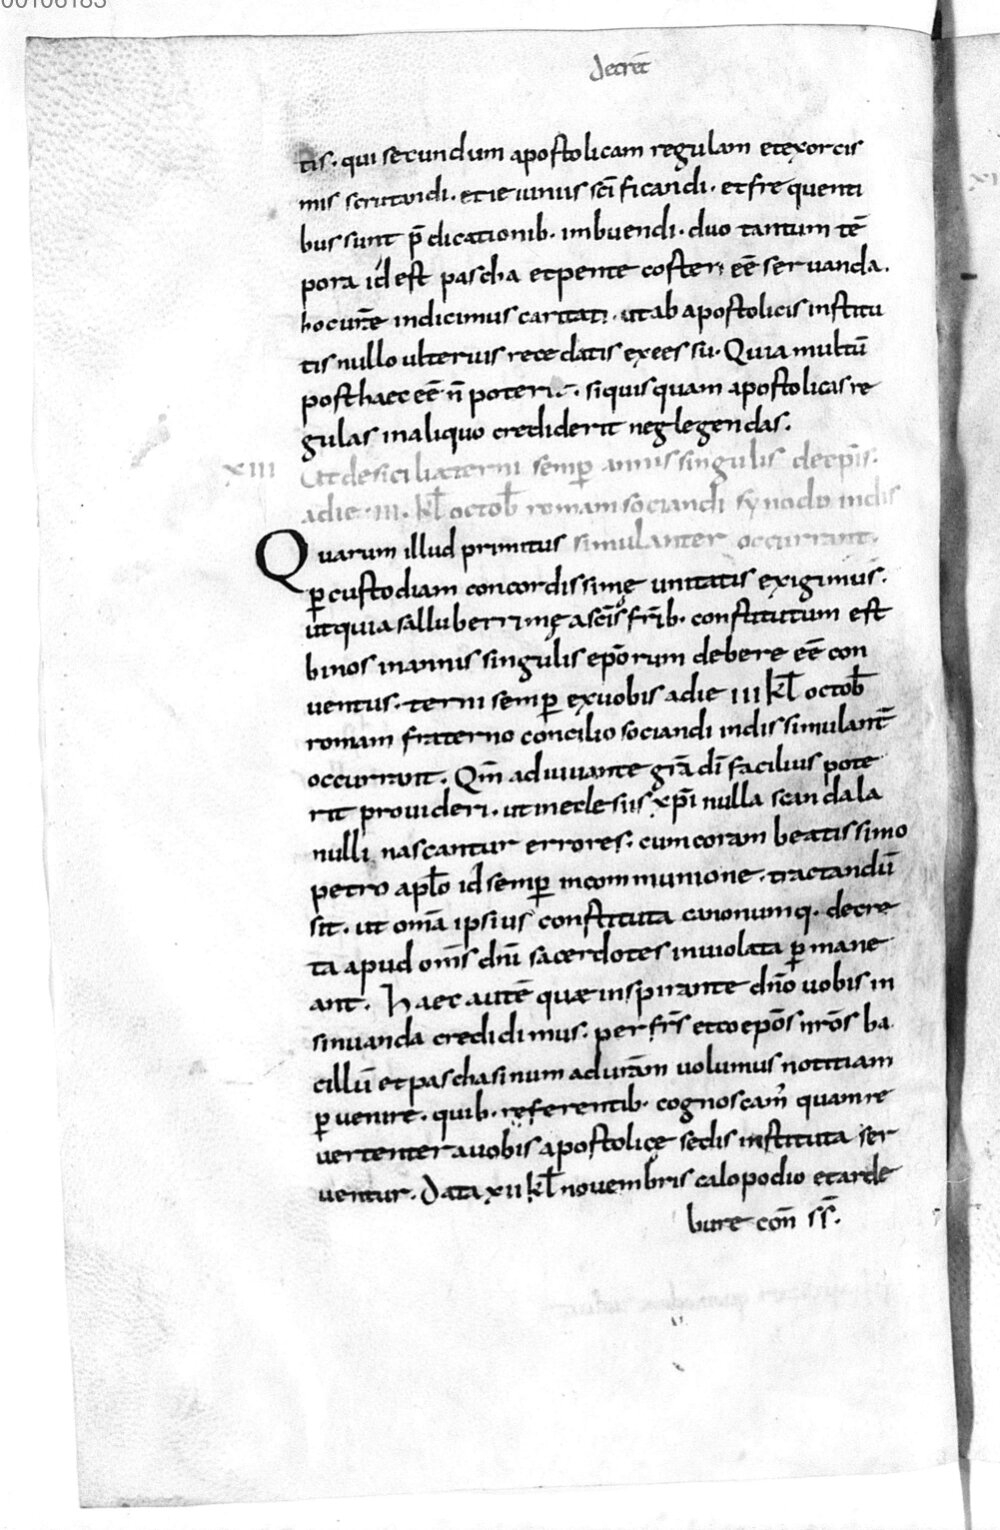 00106183
decret̄
tis. qui secundum apostolicam regulam et exorcis
mis scrutandi. et ieiuniis sc̄ificandi. et frequenti
bus sunt p̄dicationib. imbuendi. duo tantum tē
pora id est pascha et pentecosten eē seruanda.
hoc ur̄e indicimus caritati. ut ab apostolicis institu
tis nullo ulterius recedatis excessu. Quia multū
post haec eē n̄ poterit si quisquam apostolicas re
gulas in aliquo crediderit neglegendas.
XIII Ut de sicilia terni semp̱ annis singulis de ep̄is.
a die. III. kl̄ octob̄ romam sociandi synodo indis
Quarum illud primitus simulanter occurrant.
p̱ custodiam concordissimę unitatis exigimus.
ut quia salluberrimę a sc̄is fr̄ib. constitutum est
binos in annis singulis ep̄orum debere eē con
uentus. terni semp̱ ex uobis a die III kl̄ octob̄
romam fraterno concilio sociandi indissimulant̄
occurrant. Qm̄ adiuuante gr̄a dī facilius pote
rit prouideri. ut in eclesiis xp̄i nulla scandala
nulli nascantur errores. cum coram beatissimo
petro apl̄o id semp̱ in communione. tractandū
sit. ut om̄a ipsius constituta canonumq. decre
ta apud om̄s dn̄i sacerdotes inuiolata p̱mane
ant. Haec autē quae inspirante dn̄o uobis in
sinuanda credidimus. per fr̄s et coep̄os nr̄os ba
cillū et paschasinum ad ur̄am uolumus notitiam
p̱uenire. quib. referentib. cognoscam̄ quam re
uertenter a uobis apostolicę sedis instituta ser
uentur. Data XII kl̄ nouembris calopodio et arde
bure con̄ ss̄.